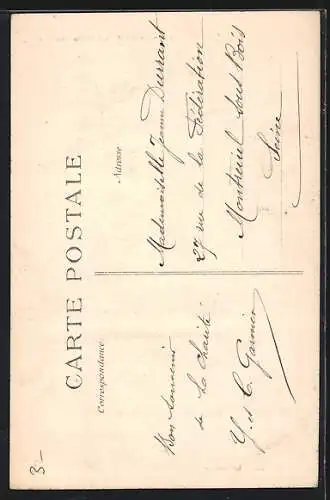 CARTE POSTALE
Correspondance
Adresse
Bon souvenir
de La Charité
Y et C. Garnier
Mademoiselle Jeanne Durrant
27 rue de la Fédération
Montreuil sous Bois
Seine
3-